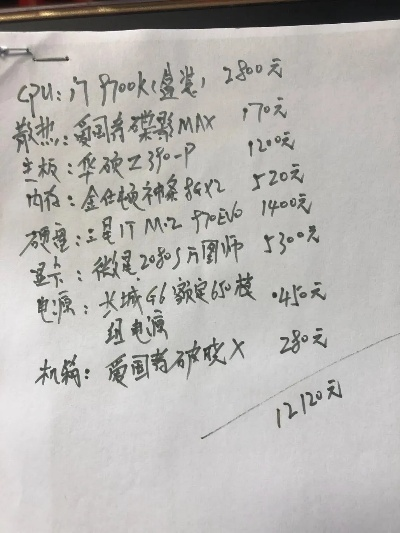 CPU: i7 9700K(盒装) 2800元
散热: 爱国者碟影MAX 170元
主板: 华硕Z390-P 1200元
内存: 金仕顿神条8GX2 520元
硬盘: 三星1T M.2 970EVO 1400元
显卡: 微星2080S万图师 5300元
电源: 长城G6额定650模 450元
组电源
机箱: 爱国者破晓X 280元
12120元